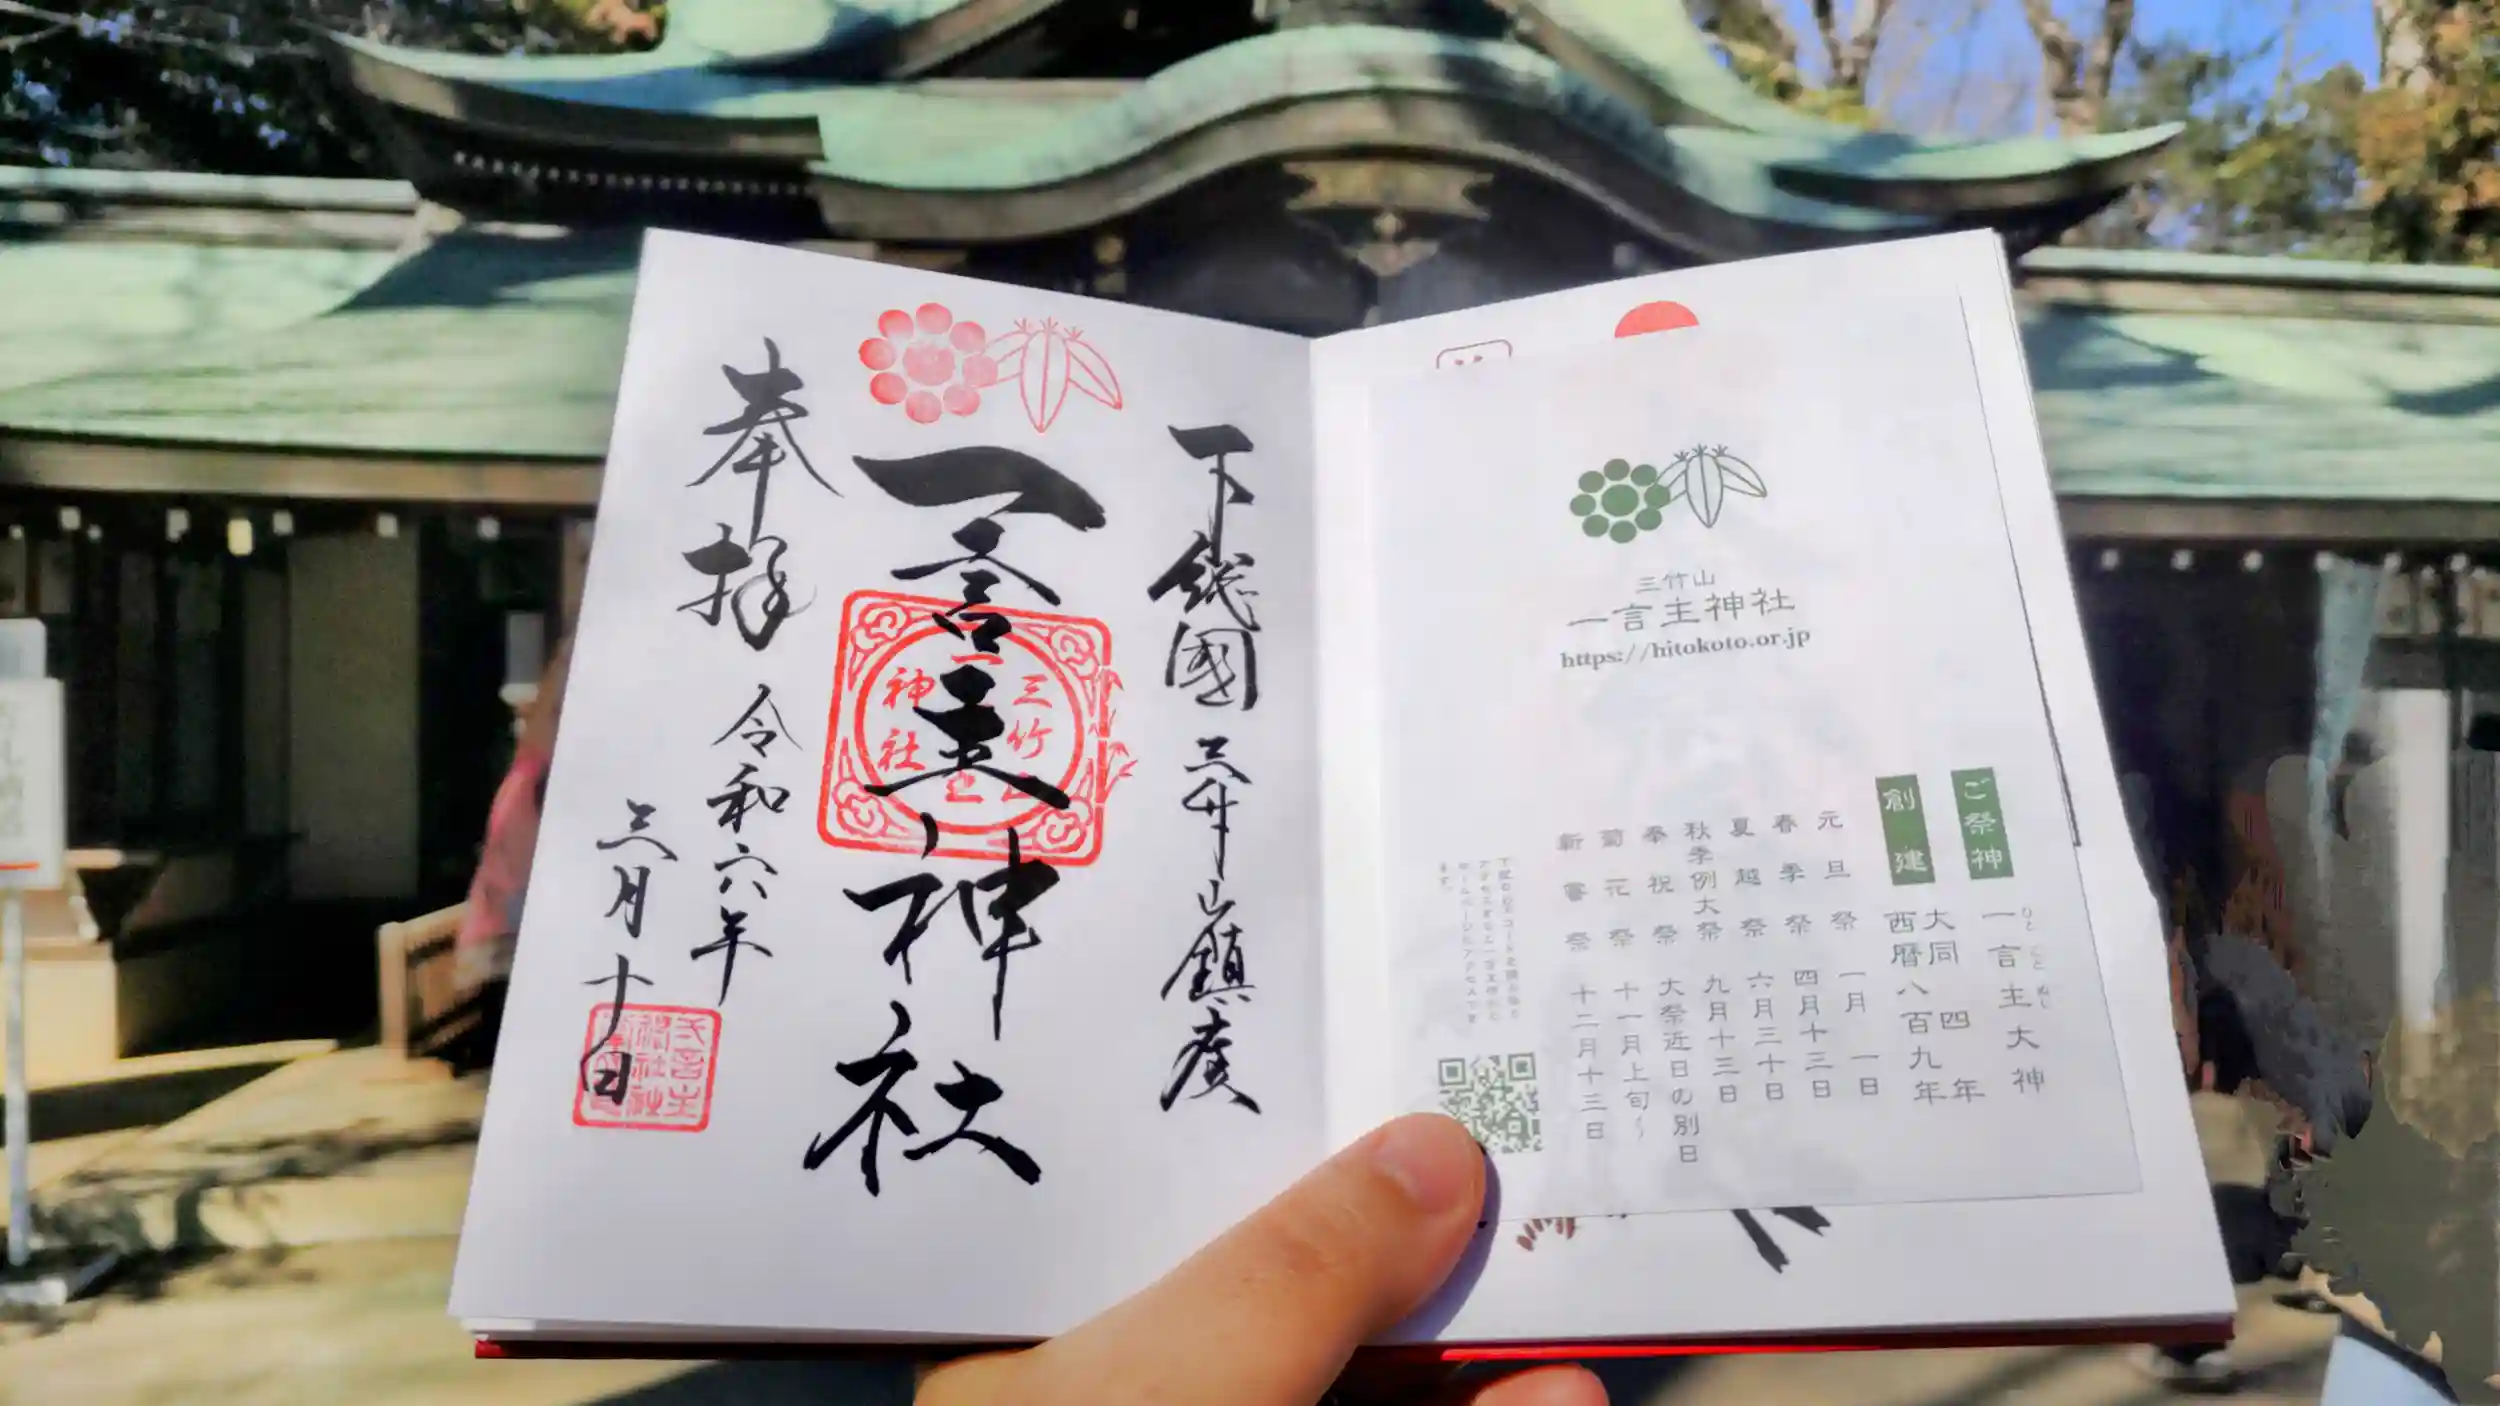 下総國 三竹山鎮座
一言主神社
三竹山
神社
奉拝
令和六年
三月十日
三竹山
一言主神社
https://hitokoto.or.jp
ご祭神 一言主大神
ひとことぬし
創建 大同四年
西暦八百九年
元旦祭 一月一日
春季祭 四月十三日
夏越祭 六月三十日
秋季例大祭 九月十三日
奉祝祭 大祭近日の別日
菊花祭 十一月上旬〜
新嘗祭 十二月十三日